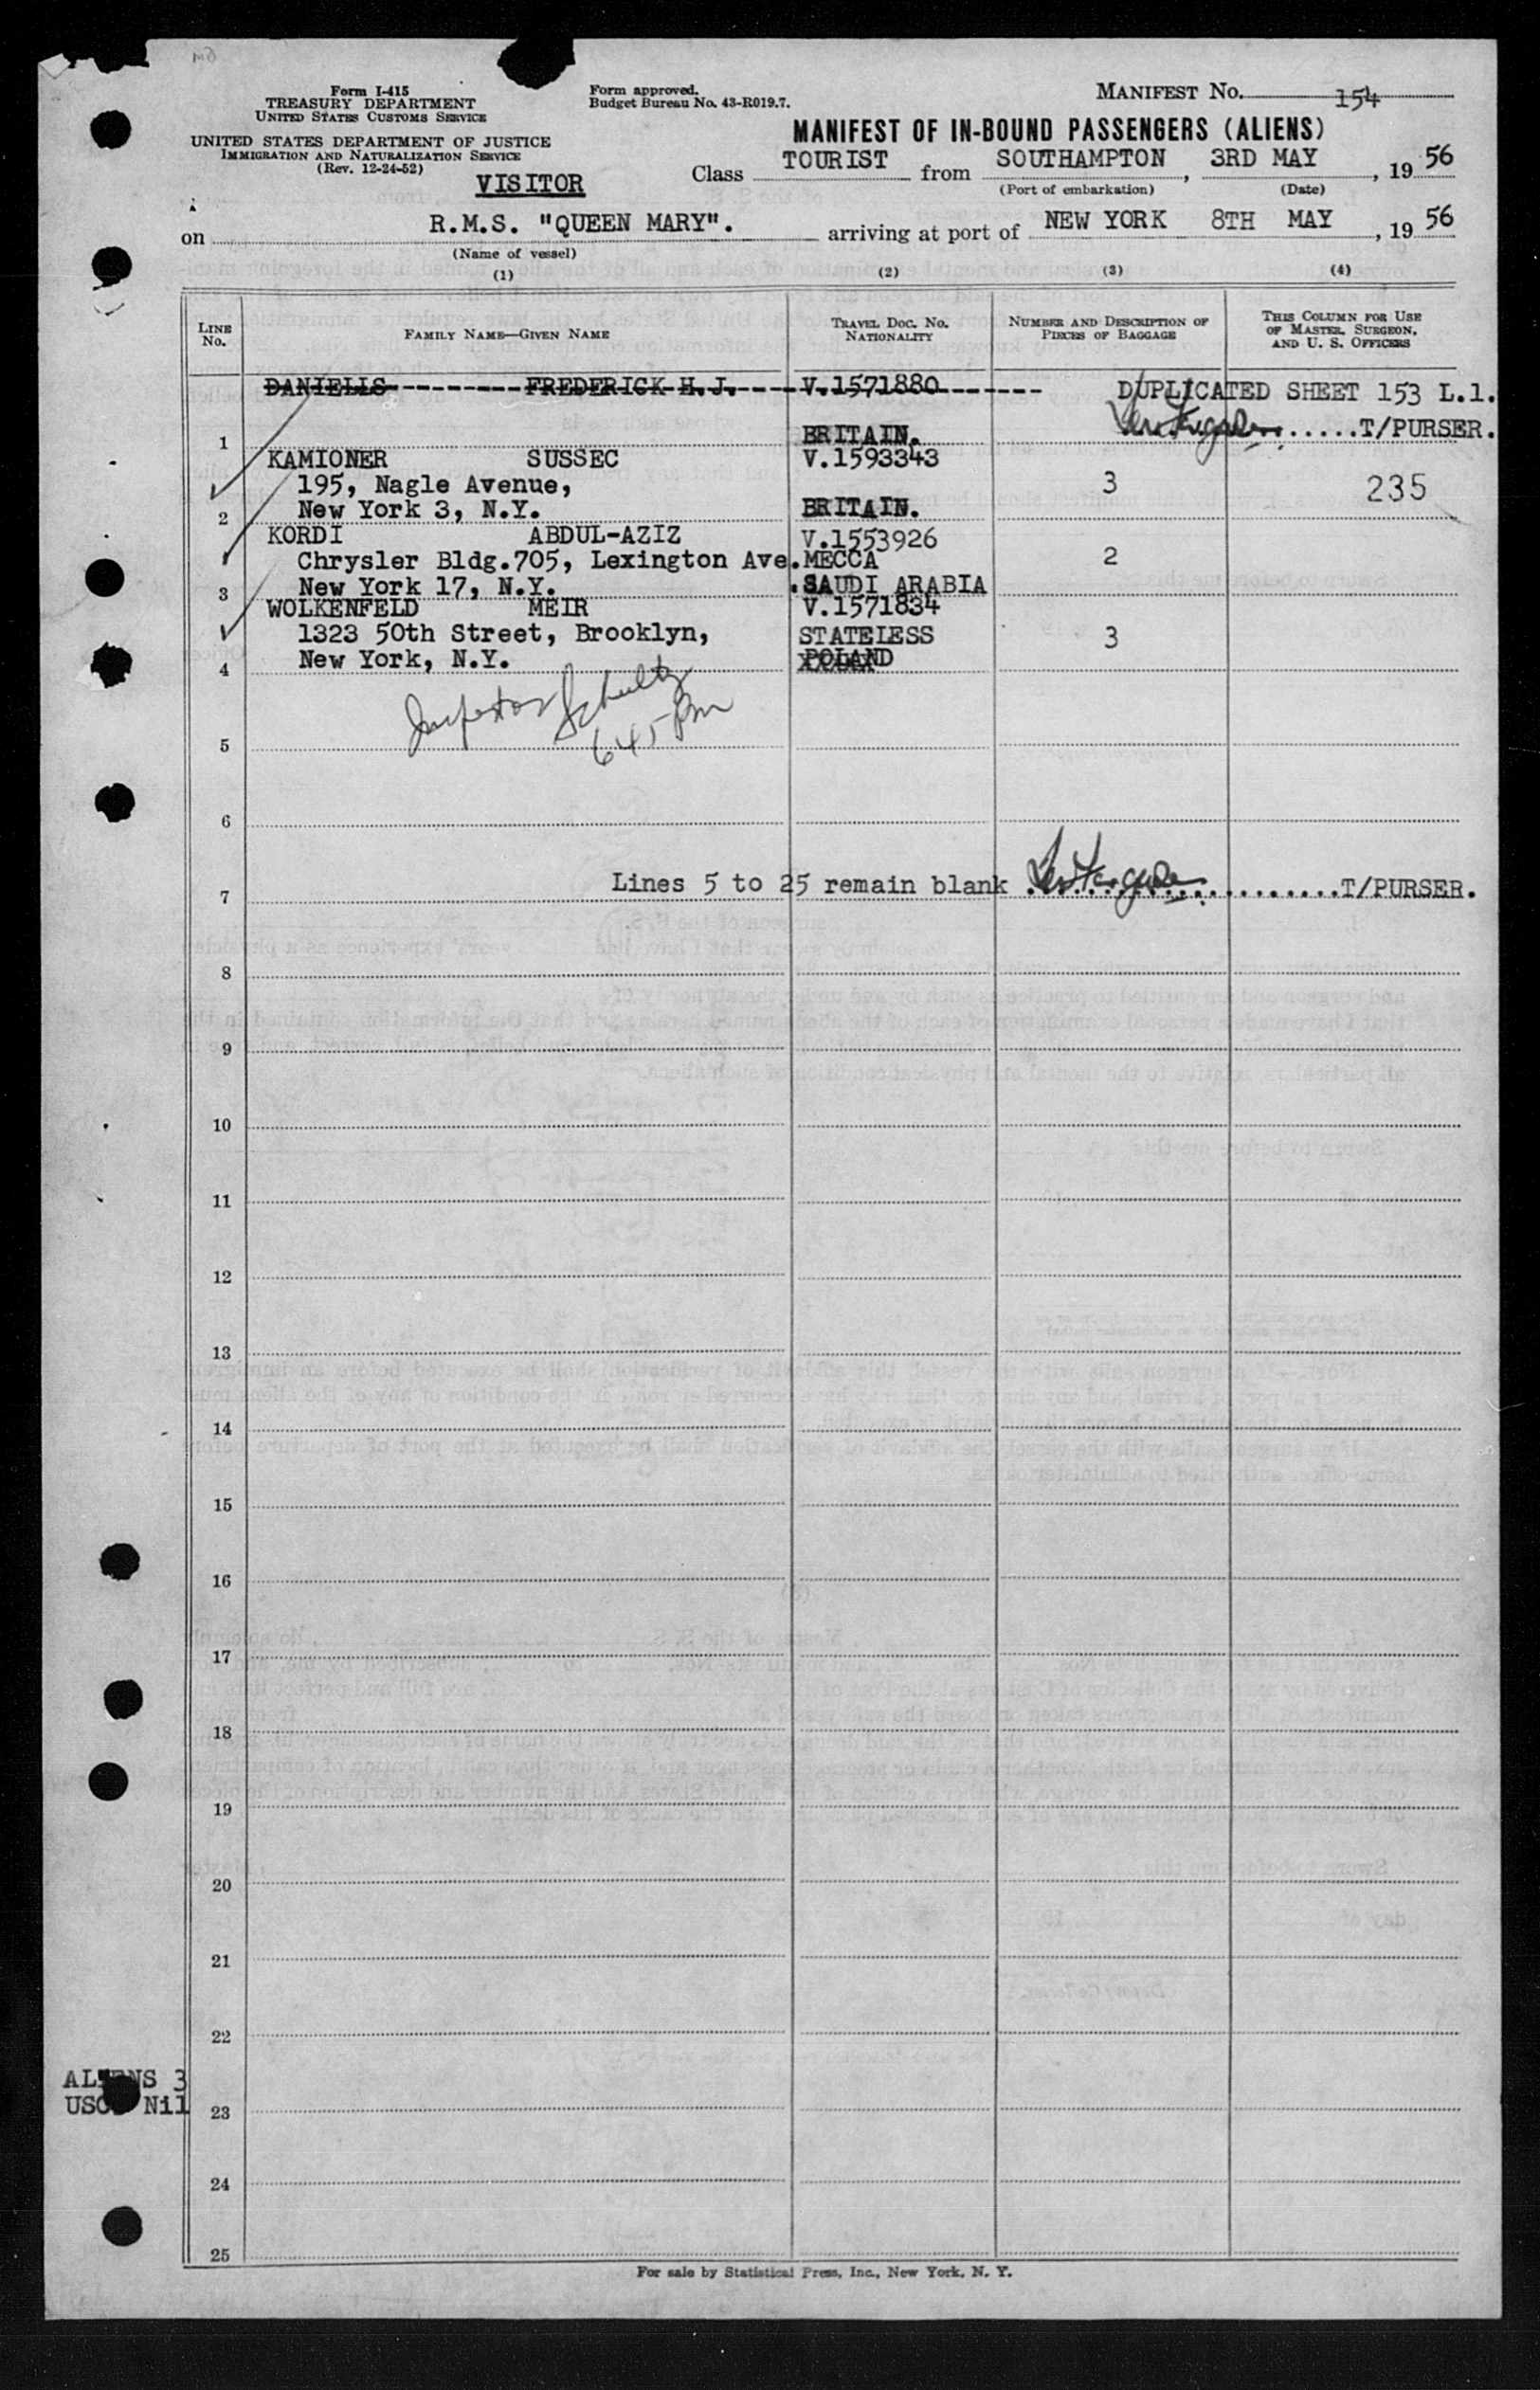 Form I-415
TREASURY DEPARTMENT
UNITED STATES CUSTOMS SERVICE
UNITED STATES DEPARTMENT OF JUSTICE
IMMIGRATION AND NATURALIZATION SERVICE
(Rev. 12-24-52)
VISITOR
Form approved.
Budget Bureau No. 43-R019.7.
MANIFEST NO. 154
MANIFEST OF IN-BOUND PASSENGERS (ALIENS)
Class TOURIST from SOUTHAMPTON, 3RD MAY, 19 56
(Port of embarkation) (Date)
on R.M.S. "QUEEN MARY". arriving at port of NEW YORK 8TH MAY, 19 56
(Name of vessel)
(1) (2) (3) (4)
LINE No. FAMILY NAME—GIVEN NAME TRAVEL DOC. NO. NATIONALITY NUMBER AND DESCRIPTION OF PIECES OF BAGGAGE THIS COLUMN FOR USE OF MASTER, SURGEON, AND U. S. OFFICERS
DANIELLS FREDERICK H.J. V.1571880 DUPLICATED SHEET 153 L.1.
1 BRITAIN. ......T/PURSER.
KAMIONER SUSSEC V.1593343
195, Nagle Avenue, 3 235
2 New York 3, N.Y. BRITAIN.
KORDI ABDUL-AZIZ V.1553926
Chrysler Bldg.705, Lexington Ave. MECCA 2
3 New York 17, N.Y. SAUDI ARABIA
WOLKENFELD MEIR V.1571834
1323 50th Street, Brooklyn, STATELESS 3
4 New York, N.Y. POLAND
Inspector Schultz
645 Pm
5
6
7 Lines 5 to 25 remain blank ......T/PURSER.
8
9
10
11
12
13
14
15
16
17
18
19
20
21
22
ALIENS 3
USC Nil
23
24
25
For sale by Statistical Press, Inc., New York, N. Y.